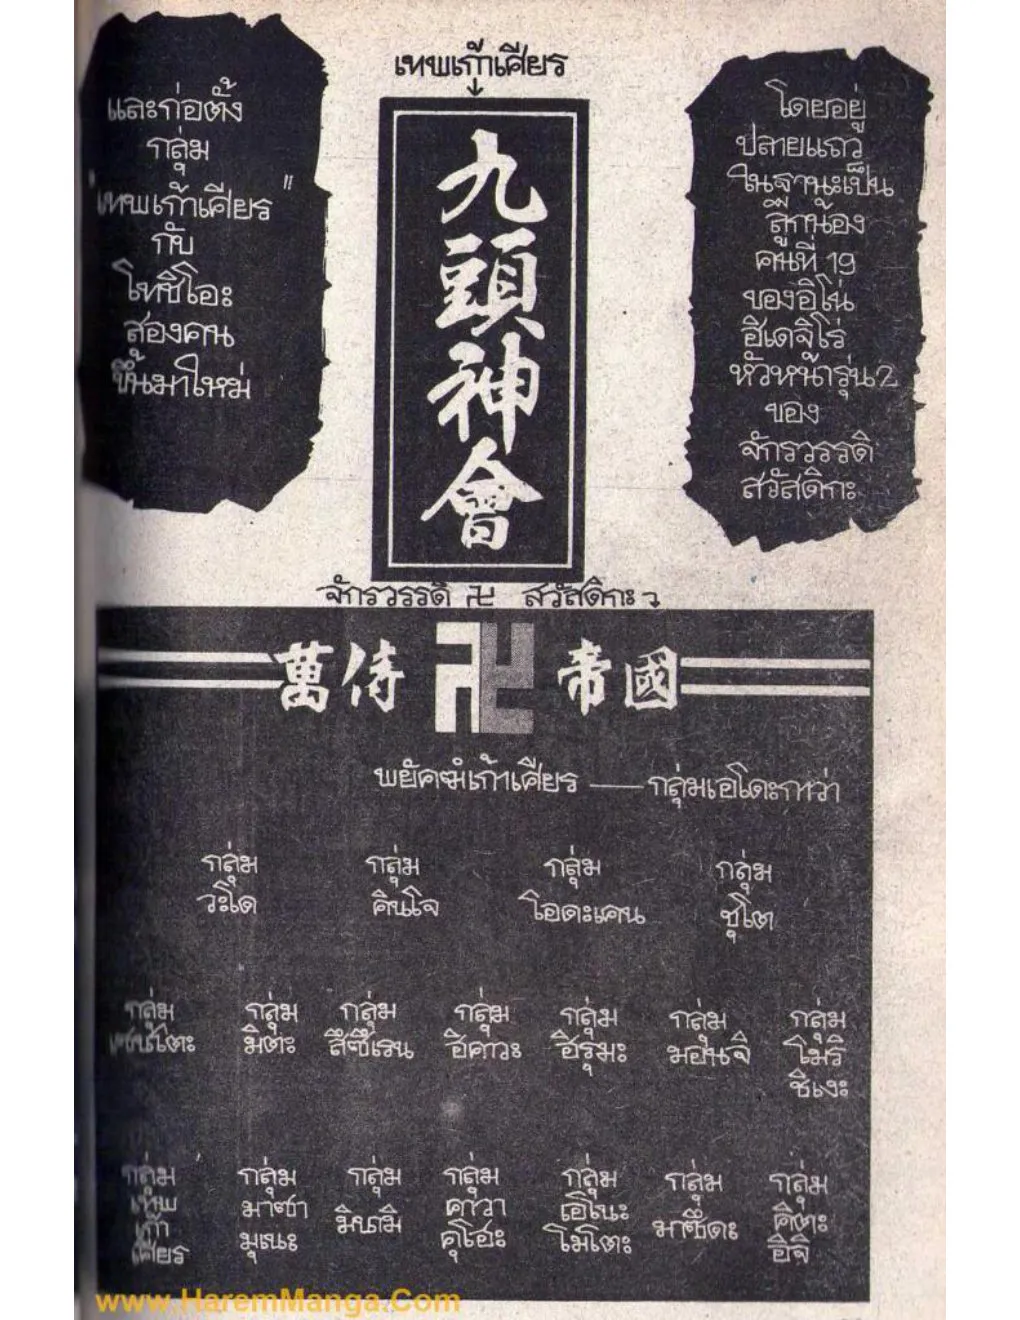 เทพเก้าเศียร
โดยอยู่
ปลายแถว
ในฐานะเป็น
ลูกน้อง
คนที่ 19
ของอิโน่
ฮิเดจิโร่
หัวหน้ารุ่น 2
ของ
จักรวรรดิ
สวัสดิกะ
九頭神會
และก่อตั้ง
กลุ่ม
"เทพเก้าเศียร"
กับ
โทชิโอะ
สองคน
ขึ้นมาใหม่
จักรวรรดิ 卍 สวัสดิกะ
萬侍 卍 帝國
พยัคฆ์เก้าเศียร — กลุ่มเอโดะกาว่า
กลุ่ม
วะโด
กลุ่ม
คินโจ
กลุ่ม
โอดะเคน
กลุ่ม
ชุโต
กลุ่ม
เซนโตะ
กลุ่ม
มิตะ
กลุ่ม
สึซึเรน
กลุ่ม
อิคาวะ
กลุ่ม
ฮิรุมะ
กลุ่ม
มอนจิ
กลุ่ม
โมริ
ชิเงะ
กลุ่ม
เทพ
เก้า
เศียร
กลุ่ม
มาซา
มุเนะ
กลุ่ม
มินามิ
กลุ่ม
คาวา
คุโฮะ
กลุ่ม
เอิโนะ
โมโตะ
กลุ่ม
มาซึดะ
กลุ่ม
คิตะ
อิจิ
www.HaremManga.Com